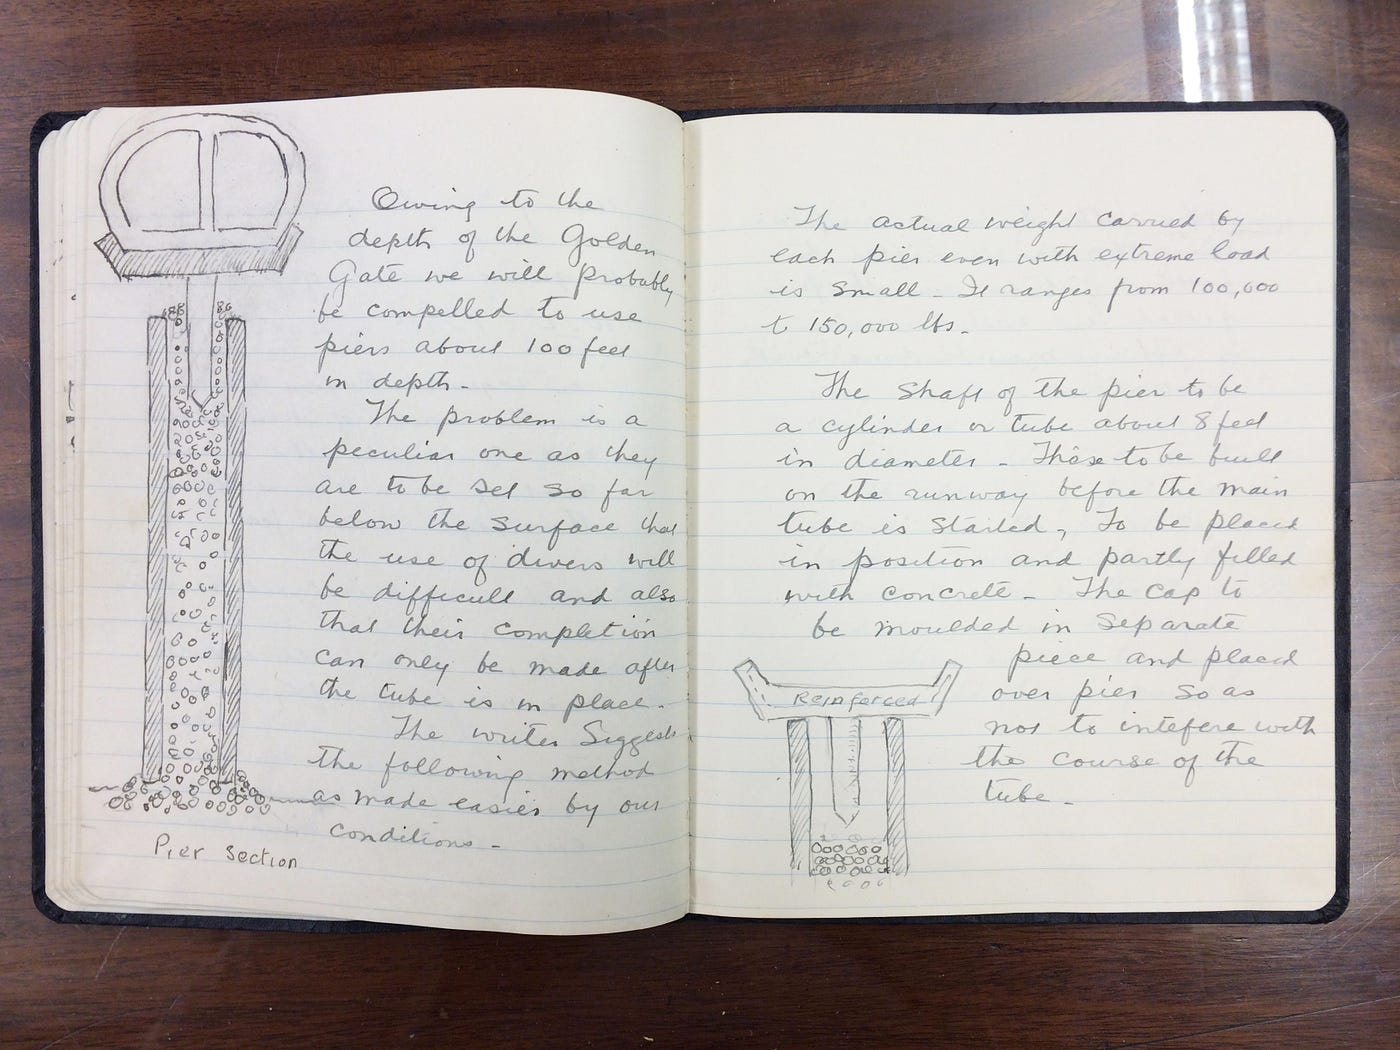 Owing to the
depth of the Golden
Gate we will probably
be compelled to use
piers about 100 feet
in depth -
The problem is a
peculiar one as they
are to be set so far
below the surface that
the use of divers will
be difficult and also
that their completion
can only be made after
the tube is in place -
The writer Suggests
the following method
as made easier by our
conditions -
Pier Section
The actual weight carried by
each pier even with extreme load
is small - It ranges from 100,000
to 150,000 lbs -
The shaft of the pier to be
a cylinder or tube about 8 feet
in diameter - These to be built
on the runway before the main
tube is started, To be placed
in position and partly filled
with concrete - The cap to
be moulded in separate
piece and placed
over pier so as
not to intefere with
the course of the
tube -
Reinforced